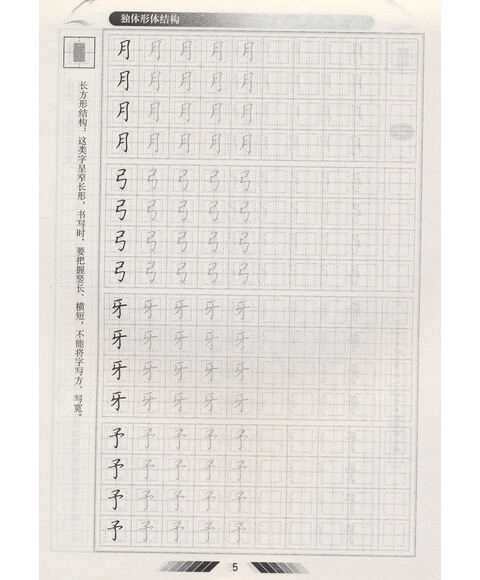 独体形体结构
长方形结构：这类字呈窄长形，书写时，要把握竖长、横短，不能将字写方、写宽。
月 月 月 月 月
月 月 月 月 月
月 月 月 月 月
月 月 月 月 月
弓 弓 弓 弓 弓
弓 弓 弓 弓 弓
弓 弓 弓 弓 弓
弓 弓 弓 弓 弓
牙 牙 牙 牙 牙
牙 牙 牙 牙 牙
牙 牙 牙 牙 牙
牙 牙 牙 牙 牙
予 予 予 予 予
予 予 予 予 予
予 予 予 予 予
予 予 予 予 予
5